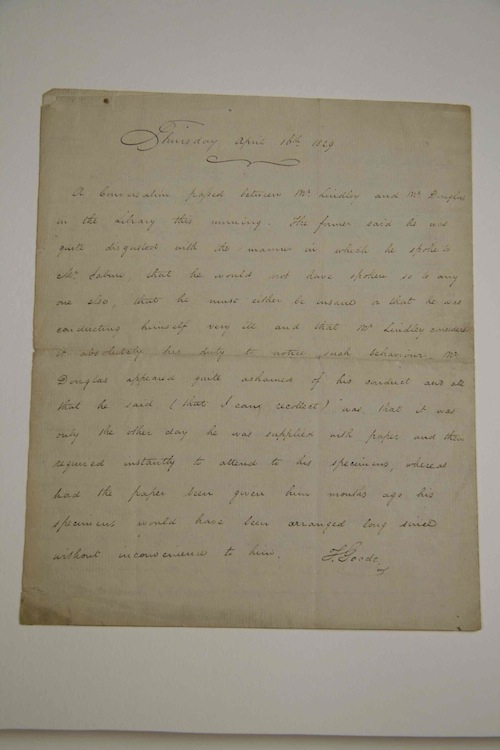 Thursday April 16th 1829
A Conversation passed between Mr Lindley and Mr Douglas
in the Library this morning. The former said he was
quite disgusted with the manner in which he spoke to
Mr Sabine, that he would not have spoken so to any
one else, that he must either be insane or that he was
conducting himself very ill and that Mr Lindley considered
it absolutely his duty to notice such behaviour Mr
Douglas appeared quite ashamed of his conduct and all
that he said (that I can recollect) was, that it was
only the other day he was supplied with paper and then
required instantly to attend to his specimens, whereas
had the paper been given him months ago his
specimens would have been arranged long since
without inconvenience to him. F. Goode